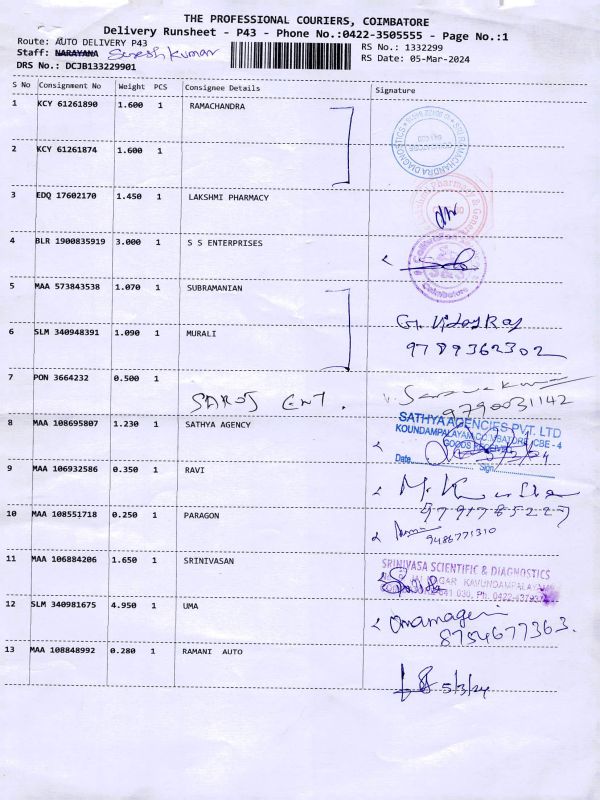 THE PROFESSIONAL COURIERS, COIMBATORE
Delivery Runsheet - P43 - Phone No.:0422-3505555 - Page No.:1
Route: AUTO DELIVERY P43
RS No.: 1332299
Staff: NARAYANA Suresh Kumar
RS Date: 05-Mar-2024
DRS No.: DCJB133229901
S No Consignment No Weight PCS Consignee Details Signature
1 KCY 61261890 1.600 1 RAMACHANDRA
SRI RAMACHANDRA DIAGNOSTICS
2 KCY 61261874 1.600 1
3 EDQ 17602170 1.450 1 LAKSHMI PHARMACY
4 BLR 1900835919 3.000 1 S S ENTERPRISES
Coimbatore
5 MAA 573843538 1.070 1 SUBRAMANIAN
G. Vijay Raj
6 SLM 340948391 1.090 1 MURALI
9789362302
7 PON 3664232 0.500 1
SAROJ ENT.
Saravanakumar
9790031142
8 MAA 108695807 1.230 1 SATHYA AGENCY
SATHYA AGENCIES PVT. LTD
KOUNDAMPALAYAM, COIMBATORE, CBE - 4
GOODS RECEIVED
Date Sign
9 MAA 106932586 0.350 1 RAVI
10 MAA 108551718 0.250 1 PARAGON
9486771310
11 MAA 106884206 1.650 1 SRINIVASAN
SRINIVASA SCIENTIFIC & DIAGNOSTICS
NAGAR KAVUNDAMPALAYAM
641 030, Ph. 0422-
12 SLM 340981675 4.950 1 UMA
Umamageri
8754677363.
13 MAA 108848992 0.280 1 RAMANI AUTO
5/3/24